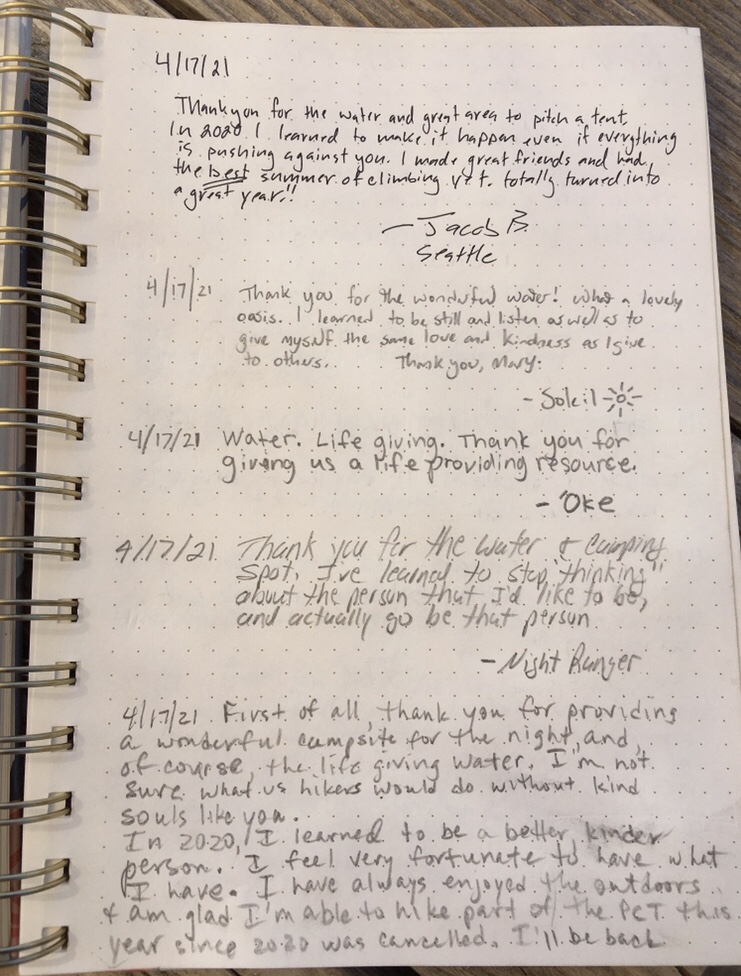 4/17/21
Thank you for the water and great area to pitch a tent,
In 2020 I learned to make it happen even if everything
is pushing against you. I made great friends and had
the best summer of climbing yet. totally turned into
a great year!!
- Jacob B.
Seattle
4/17/21 Thank you for the wonderful water! What a lovely
oasis. I learned to be still and listen as well as to
give myself the same love and kindness as I give
to others. Thank you, Mary.
- Soleil
4/17/21 Water. Life giving. Thank you for
giving us a life providing resource.
- Oke
4/17/21 Thank you for the water & camping
spot. I've learned to stop "thinking"
about the person that I'd like to be,
and actually go be that person
- Night Ranger
4/17/21 First of all, thank you for providing
a wonderful campsite for the night, and,
of course, the life giving water. I'm not
sure what us hikers would do without kind
souls like you.
In 2020, I learned to be a better, kinder
person. I feel very fortunate to have what
I have. I have always enjoyed the outdoors
& am glad I'm able to hike part of the PCT this
year since 2020 was cancelled. I'll be back